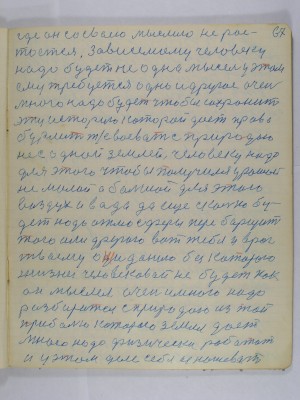 где он со своею мыслию не рас-
тостся. Зависемому человеку
надо будет не одна мысел у этом
ему требуется одно и другое очен
много надо будет чтобы сохранит
эту историю которая дает права
бурлит и воеват с природою
не с одной землей, человеку надо
для этого чтобы получился урожай
не малой а болшой для этого
воздух и вада да еще скажу бу-
дет надо атмосфера перебаришт
того или другого вот тебе и враг
твоему ожиданию без каторого
жизни человеской не будет как
он мыслел очен много надо
разбиратся с природаю из той
прибалю каторою земля дает
много надо физически работат
и у этом деле себя
67